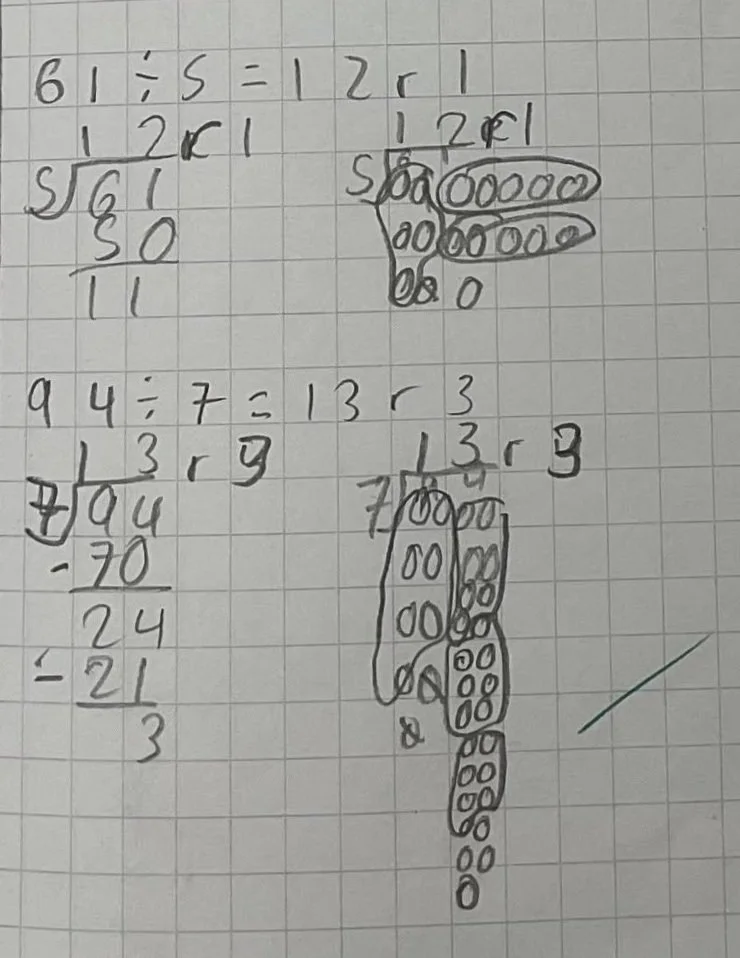 61 ÷ 5 = 12 r 1
12 r 1
5 61
50
11
12 r 1
5
94 ÷ 7 = 13 r 3
13 r 3
7 94
- 70
24
- 21
3
13 r 3
7